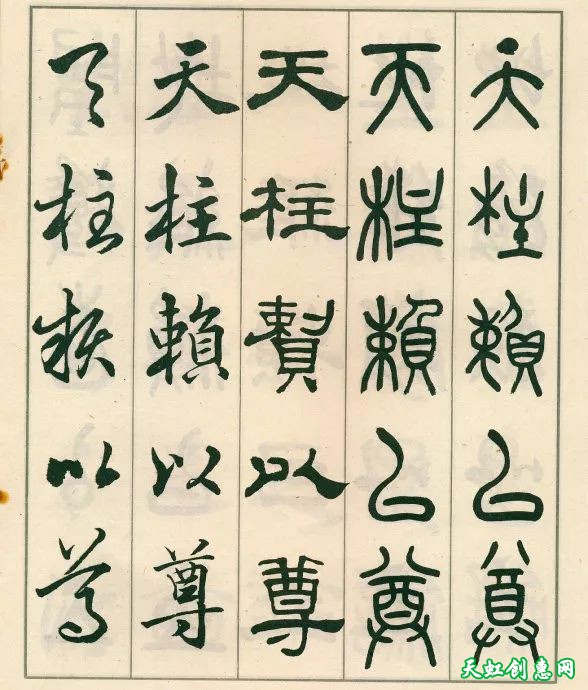 天柱賴以尊
天柱賴以尊
天柱賴以尊
天柱賴以尊
天柱賴以尊
天虹创惠网